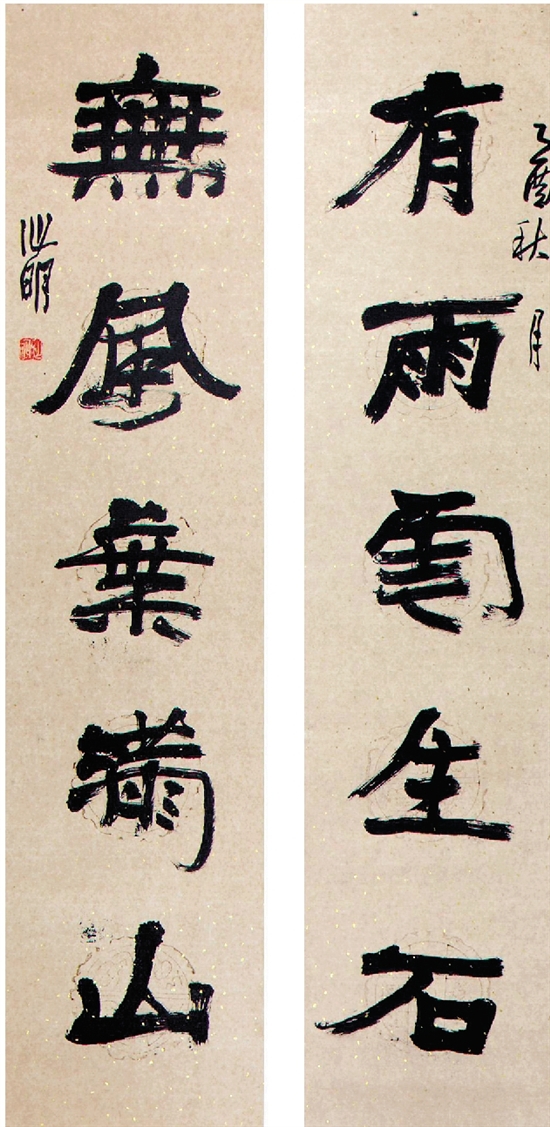 乙酉秋月
有雨雲生石
無風葉滿山